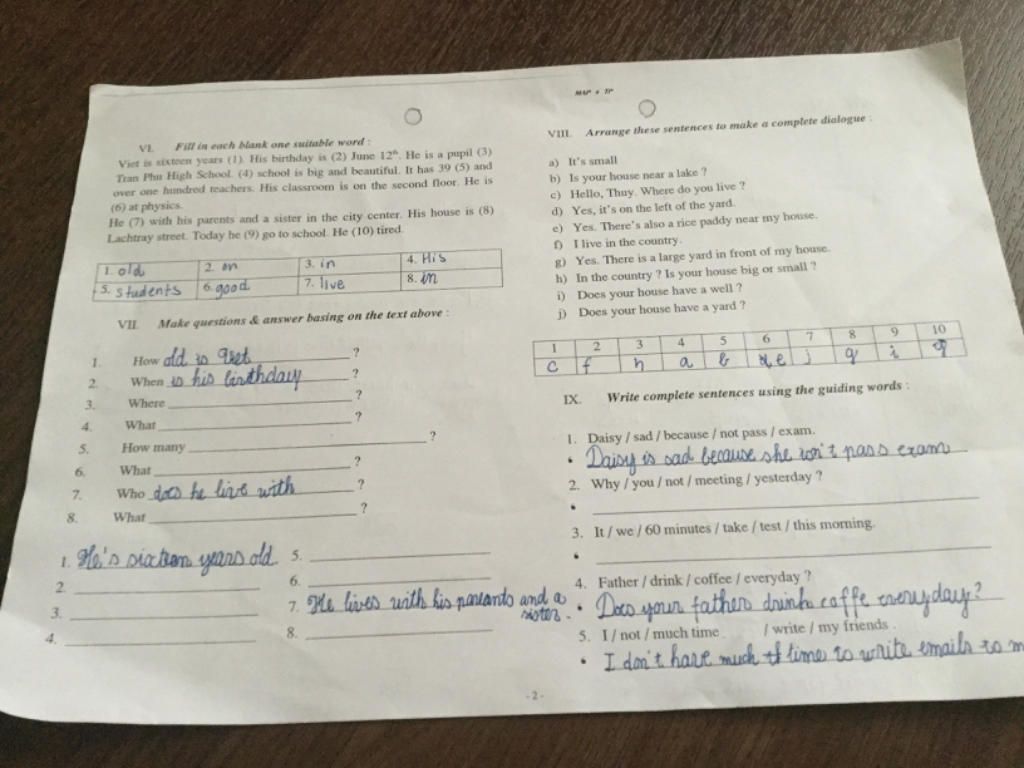 MAI* + TI*
VI. Fill in each blank one suitable word :
Viet is sixteen years (1). His birthday is (2) June 12th. He is a pupil (3)
Tran Phu High School. (4) school is big and beautiful. It has 39 (5) and
over one hundred teachers. His classroom is on the second floor. He is
(6) at physics.
He (7) with his parents and a sister in the city center. His house is (8)
Lachtray street. Today he (9) go to school. He (10) tired.
1. old 2. on 3. in 4. His
5. students 6. good 7. live 8. in
VII. Make questions & answer basing on the text above :
1. How old is ?
2. When is his birthday ?
3. Where ?
4. What ?
5. How many ?
6. What ?
7. Who does he live with ?
8. What ?
1. He's sixteen years old.
2.
3.
4.
5.
6.
7. He lives with his parents and a
sister.
8.
VIII. Arrange these sentences to make a complete dialogue :
a) It's small
b) Is your house near a lake ?
c) Hello, Thuy. Where do you live ?
d) Yes, it's on the left of the yard.
e) Yes. There's also a rice paddy near my house.
f) I live in the country.
g) Yes. There is a large yard in front of my house.
h) In the country ? Is your house big or small ?
i) Does your house have a well ?
j) Does your house have a yard ?
1 2 3 4 5 6 7 8 9 10
c f h a b e j g i
IX. Write complete sentences using the guiding words :
1. Daisy / sad / because / not pass / exam.
• Daisy is sad because she won't pass exam
2. Why / you / not / meeting / yesterday ?
•
3. It / we / 60 minutes / take / test / this morning.
•
4. Father / drink / coffee / everyday ?
• Does your father drink coffe everyday?
5. I / not / much time / write / my friends .
• I don't have much time to write emails to m
- 2 -